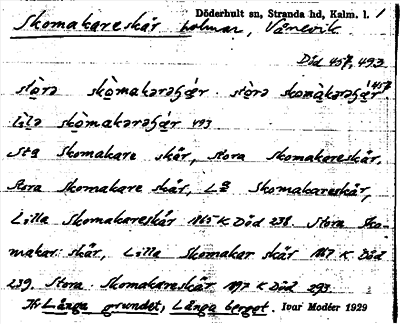 Döderhult sn, Stranda hd, Kalm. l. 1
Skomakareskär holmar, Vånevik
Död 457, 493
stòra skòmakarəʂæ̀r. stòra skomàkarəʂæ̀r 457
lìla skòmakarəʂæ̀r 493
Sta Skomakare skär, Stora Skomakareskär.
Stora Skomakare skär, La Skomakareskär,
Lilla Skomakareskär 1865 K Död 238 Stora Sko-
makar: skär, Lilla Skomakar. skär 1867 K Död
239. Stora Skomakareskär 1897 K Död 293
Jfr Långa grundet, Långa berget. Ivar Modéer 1929